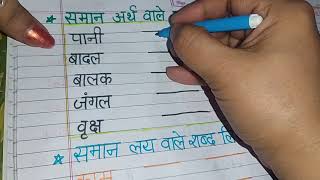 * समान अर्थ वाले
पानी —
बादल —
बालक —
जंगल —
वृक्ष —
* समान लय वाले शब्द